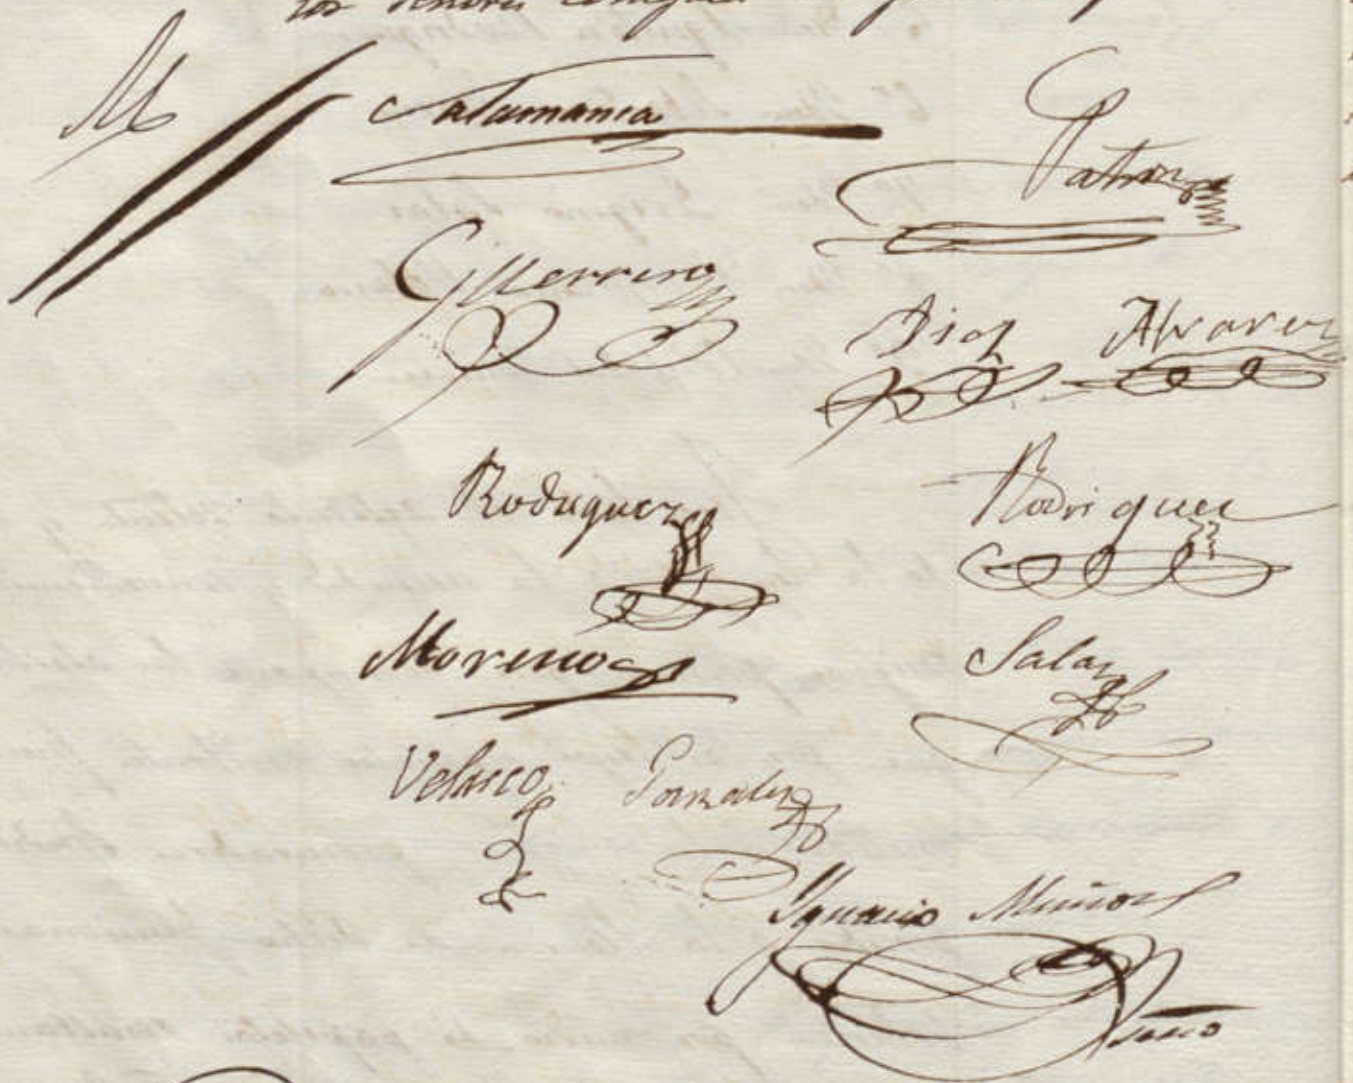 los Señores
M Salamanca
Patron
Guerrero
Diaz Alvarez
Rodriguez Rodriguez
Moreno Salas
Velasco Gonzalez
Ygnacio Muñoz